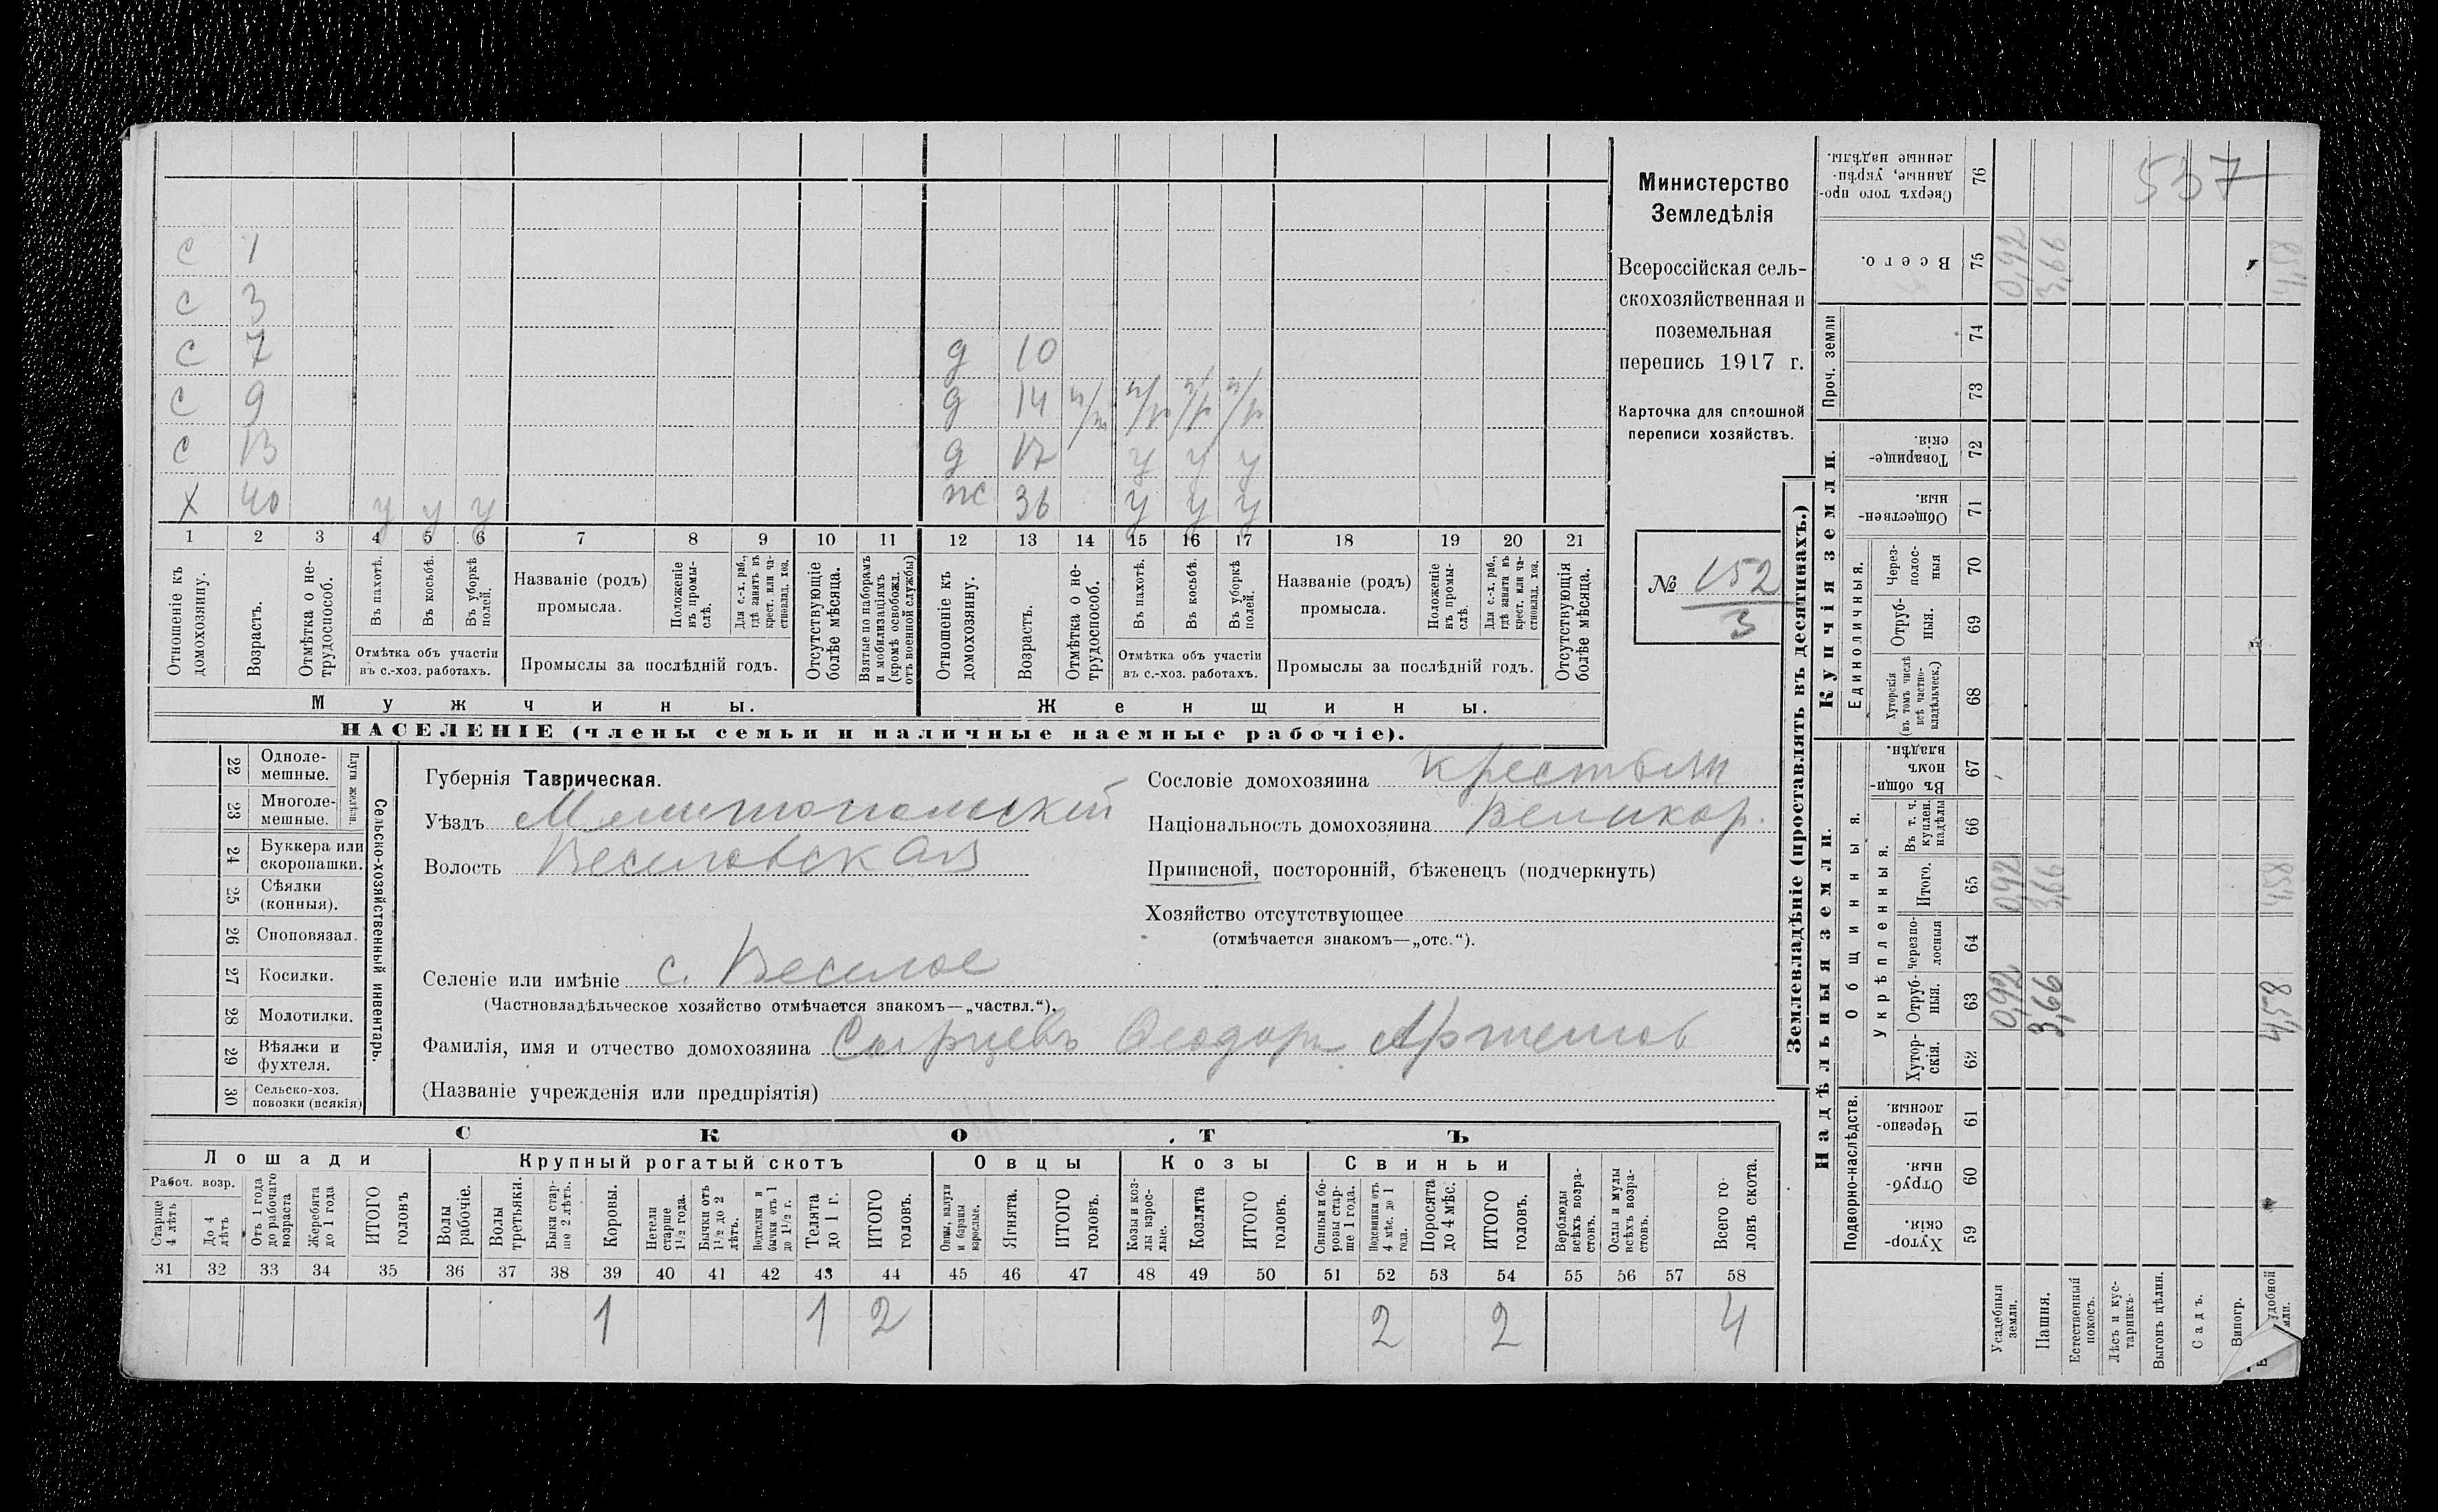 537
Министерство
Земледѣлія
Всероссійская сель-
скохозяйственная и
поземельная
перепись 1917 г.
Карточка для сплошной
переписи хозяйствъ.
№ 152
3
с 1
с 3
с 7 д 10
с 9 д 14 п/р п/р п/р
с 13 д 17 у у у
х 40 у у у ж 36 у у у
1 2 3 4 5 6 7 8 9 10 11 12 13 14 15 16 17 18 19 20 21
Отношеніе къ домохозяину.
Возрастъ.
Отмѣтка о не-трудоспособ.
Въ пахотѣ.
Въ косьбѣ.
Въ уборкѣ полей.
Отмѣтка объ участіи
въ с.-хоз. работахъ.
Названіе (родъ)
промысла.
Положеніе въ промы-слѣ.
Для с.-х. раб., гдѣ занятъ въ крест. или ча-стновлад. хоз.
Промыслы за послѣдній годъ.
Отсутствующіе болѣе мѣсяца.
Взятые по наборамъ и мобилизаціямъ (кромѣ освобожд. отъ военной службы)
Отношеніе къ домохозяину.
Возрастъ.
Отмѣтка о не-трудоспособ.
Въ пахотѣ.
Въ косьбѣ.
Въ уборкѣ полей.
Отмѣтка объ участіи
въ с.-хоз. работахъ.
Названіе (родъ)
промысла.
Положеніе въ промы-слѣ.
Для с.-х. раб., гдѣ занята въ крест. или ча-стновлад. хоз.
Промыслы за послѣдній годъ.
Отсутствующія болѣе мѣсяца.
Мужчины. Женщины.
НАСЕЛЕНІЕ (члены семьи и наличные наемные рабочіе).
22 Одноле-мешные.
23 Многоле-мешные.
Плуги желѣзн.
24 Буккера или скоропашки.
25 Сѣялки (конныя).
26 Сноповязал.
27 Косилки.
28 Молотилки.
29 Вѣялки и фухтеля.
30 Сельско-хоз. повозки (всякія)
Сельско-хозяйственный инвентарь.
Губернія Таврическая.
Уѣздъ Мелитопольскій
Волость Веселовская
Сословіе домохозяина крестьян
Національность домохозяина великор.
Приписной, посторонній, бѣженецъ (подчеркнуть)
Хозяйство отсутствующее
(отмѣчается знакомъ—„отс.“).
Селеніе или имѣніе с. Веселое
(Частновладѣльческое хозяйство отмѣчается знакомъ—„частвл.“).
Фамилія, имя и отчество домохозяина Сырцевъ Ѳеодоръ Артемов
(Названіе учрежденія или предпріятія)
СКОТЪ
Лошади Крупный рогатый скотъ Овцы Козы Свиньи
Рабоч. возр.
Старше 4 лѣтъ
До 4 лѣтъ
Отъ 1 года до рабочаго возраста
Жеребята до 1 года
ИТОГО головъ
Волы рабочіе.
Волы третьяки.
Быки стар-ше 2 лѣтъ.
Коровы.
Нетели старше 1 1/2 года.
Бычки отъ 1 1/2 до 2 лѣтъ.
Подтелки и бычки отъ 1 до 1 1/2 г.
Телята до 1 г.
ИТОГО головъ.
Овцы, валухи и бараны взрослые.
Ягнята.
ИТОГО головъ.
Козы и коз-лы взрос-лые.
Козлята
ИТОГО головъ.
Свиньи и бо-ровы стар-ше 1 года.
Подсвинки отъ 4 мѣс. до 1 года.
Поросята до 4 мѣс.
ИТОГО головъ.
Верблюды всѣхъ возра-стовъ.
Ослы и мулы всѣхъ возра-стовъ.
Всего го-ловъ скота.
31 32 33 34 35 36 37 38 39 40 41 42 43 44 45 46 47 48 49 50 51 52 53 54 55 56 57 58
1 1 2 2 2 4
Землевладѣніе (проставлять въ десятинахъ.)
Надѣльныя земли. Купчія земли.
Подворно-наслѣдств.
Общинныя.
Укрѣпленныя.
Единоличныя.
Проч. земли
Сверхъ того про-данные, укрѣп-ленные надѣлы. 76
Всего. 75 0,92 3,66 4,58
74
73
Товарище-скія. 72
Обществен-ныя. 71
Через-полос-ныя 70
Отруб-ныя. 69
Хуторскія (въ томъ числѣ всѣ частно-владѣльческ.) 68
Въ общин-номъ владѣн. 67
Въ т. ч. куплен. надѣлы 66
Итого. 65 0,92 3,66 4,58
Черезпо-лосныя 64
Отруб-ныя. 63 0,92 3,66 4,58
Хутор-скія. 62
Черезпо-лосныя. 61
Отруб-ныя. 60
Хутор-скія. 59
Усадебныя земли.
Пашня.
Естественный покосъ.
Лѣсъ и кус-тарникъ.
Выгонъ цѣлин.
Садъ.
Виногр.
удобной